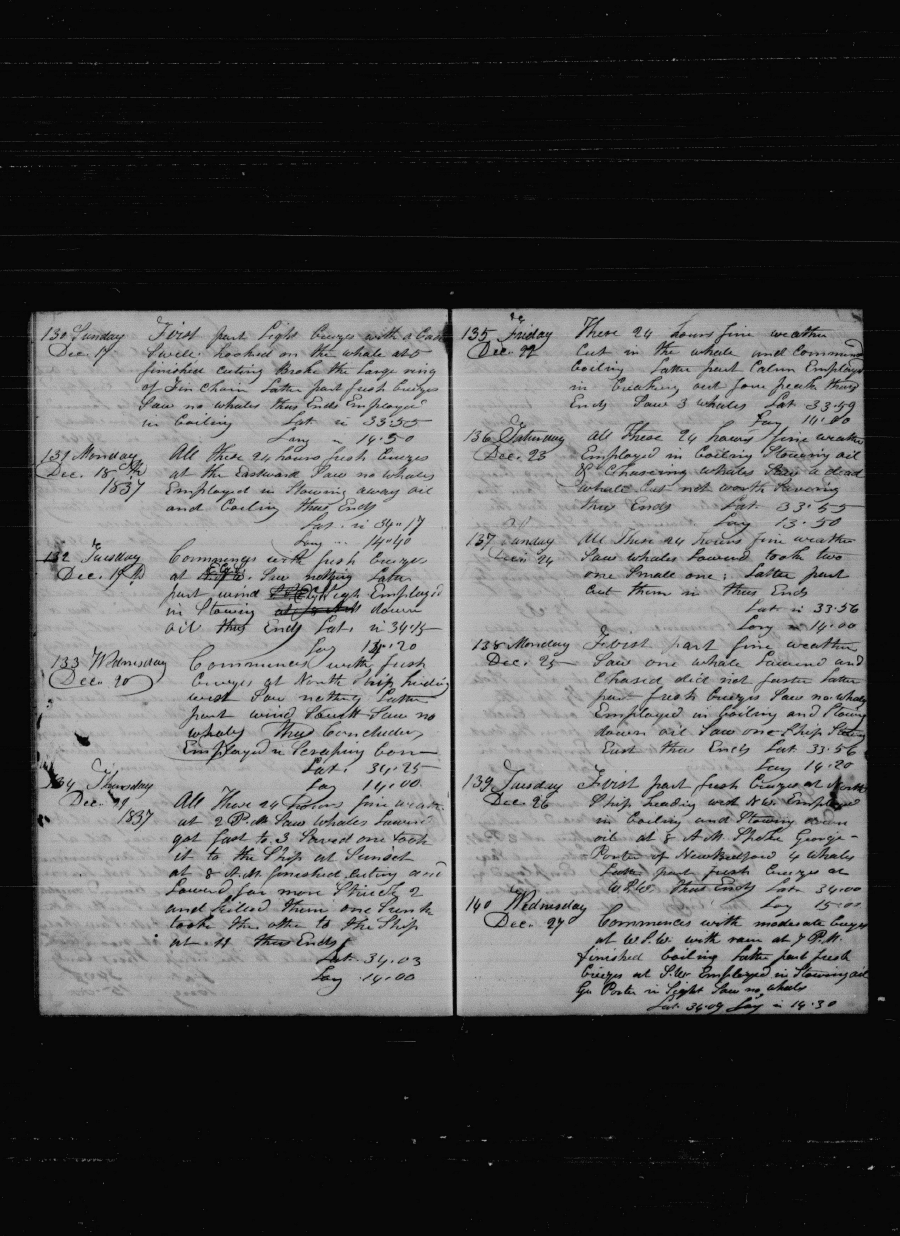 130 Sunday First part Light breezes with a bad
Dec. 17 Swell hooked on the whale at 5
finished cuting broke the Large ring
of Fin Chain Latter part fresh breezes
Saw no whales thus Ends Employed
in boiling Lat in 33"55
Long " 14.50
131 Monday All these 24 hours fresh breezes
Dec. 18 at the Eastward Saw no whales
1837 Employed in Stowing away oil
and boiling thus Ends
Lat. in 34"17
Long " 14"40
132 Tuesday Commences with fresh breezes
Dec. 19 at Saw nothing Latter
part wind Employed
in Stowing down
oil thus Ends Lat. in 34.15
Long 14.20
133 Wednesday Commences with fresh
Dec. 20 breezes at North Ship heading
west Saw nothing Latter
part wind South Saw no
whales Thus Concludes
Employed in Scraping bone
Lat. 34.25
Long 14.00
134 Thursday
Dec. 21 All These 24 hours fine weather
1837 at 2 P.M Saw whales Lowerd
got fast to 3 Saved one took
it to the Ship at Sunset
at 8 A.M. finished cuting and
Lowerd for more Struck 2
and killed them one Sunk
took the other to the Ship
at 11 thus Ends
Lat. 34.03
Long 14.00
135 Friday These 24 hours fine weather
Dec. 22 Cut in the whale and Commenced
boiling Latter part Calm Employed
in breaking out fore peak thus
Ends Saw 3 whales Lat 33.59
Long 14.00
136 Saturday All These 24 hours fine weather
Dec. 23 Employed in boiling Stowing oil
& Chaseing whales Saw a dead
whale but not worth Saveing
thus Ends Lat. 33.55
Long 13.50
137 Sunday All These 24 hours fine weather
Dec. 24 Saw whales Lowerd took two
one Small one; Latter part
cut them in thus Ends
Lat in 33.56
Long in 14.00
138 Monday First part fine weather
Dec. 25 Saw one whale Lowerd and
Chased did not fasten Latter
part fresh breezes Saw no whales
Employed in boiling and Stowing
down oil Saw one Ship
East thus Ends Lat 33.56
Long 14.20
139 Tuesday First part fresh breezes at North
Dec. 26 Ship heading west N.W. Employed
in boiling and Stowing down
oil at 8 A.M. Spoke George
Porter of New Bedford 4 whales
Latter part fresh breezes at
W.S.W. thus Ends Lat. 34.00
Long 15.00
140 Wednesday
Dec. 27 Commences with moderate breezes
at W.S.W. with rain at 7 P.M.
finished boiling Latter part fresh
breezes at S.W Employed in Stowing oil
Geo Porter in Sight Saw no whales
Lat. 34.09 Long in 14.30